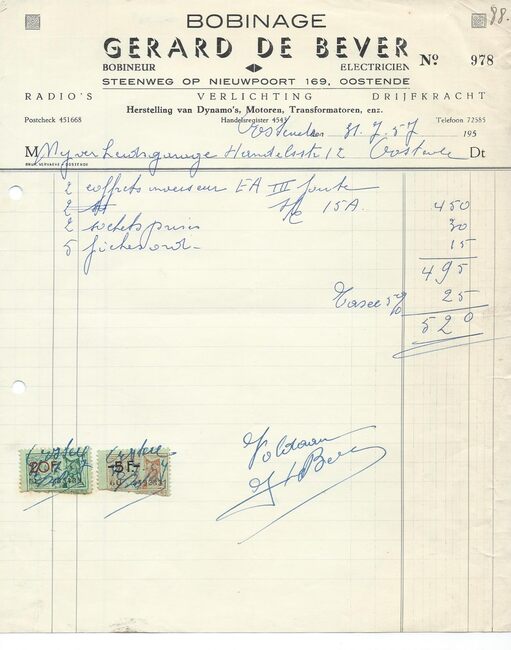 88.
BOBINAGE
GERARD DE BEVER
BOBINEUR ELECTRICIEN
Nº 978
STEENWEG OP NIEUWPOORT 169, OOSTENDE
RADIO'S VERLICHTING DRIJFKRACHT
Herstelling van Dynamo's, Motoren, Transformatoren, enz.
Postcheck 451668 Handelsregister 4548 Telefoon 72585
Oostende 31.7.57 195
M Nyverheidsgarage Handelsstr 12 Oostende Dt
DRUK. VERVAEKE - OOSTENDE
2 coffrets inverseur EA III fonte
2 15A. 450
2 sochets prises 30
5 fiches ord- 15
495
Taxe 5% 25
520
20F 5F
Voldaan
G De Bever